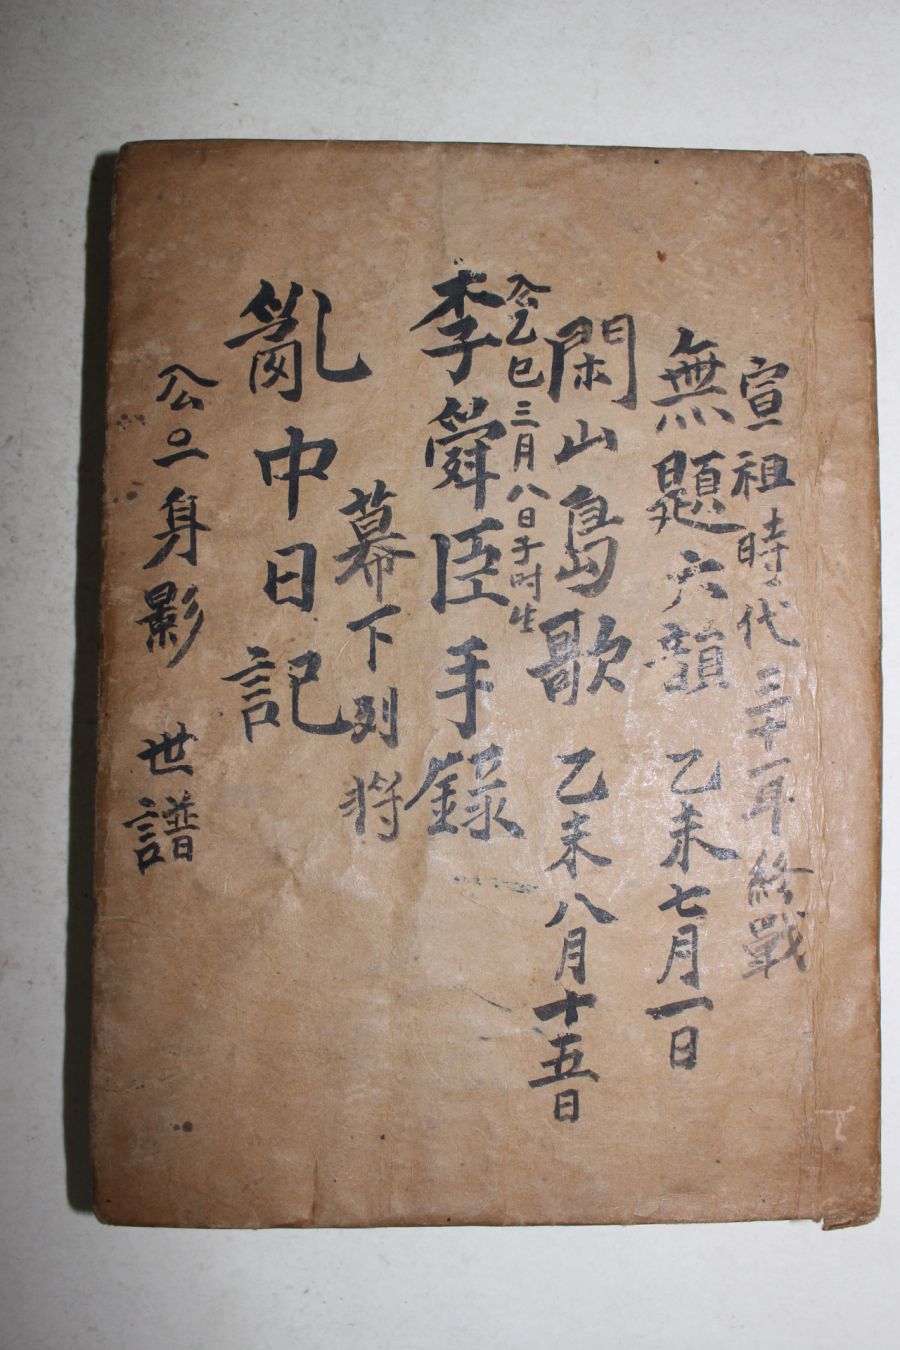 宣祖時代 三十一年 終戰
無題六韻 乙未七月一日
閑山島歌 乙未八月十五日
公乙巳三月八日子时生
李舜臣手錄
幕下列将
亂中日記
公의身影 世譜